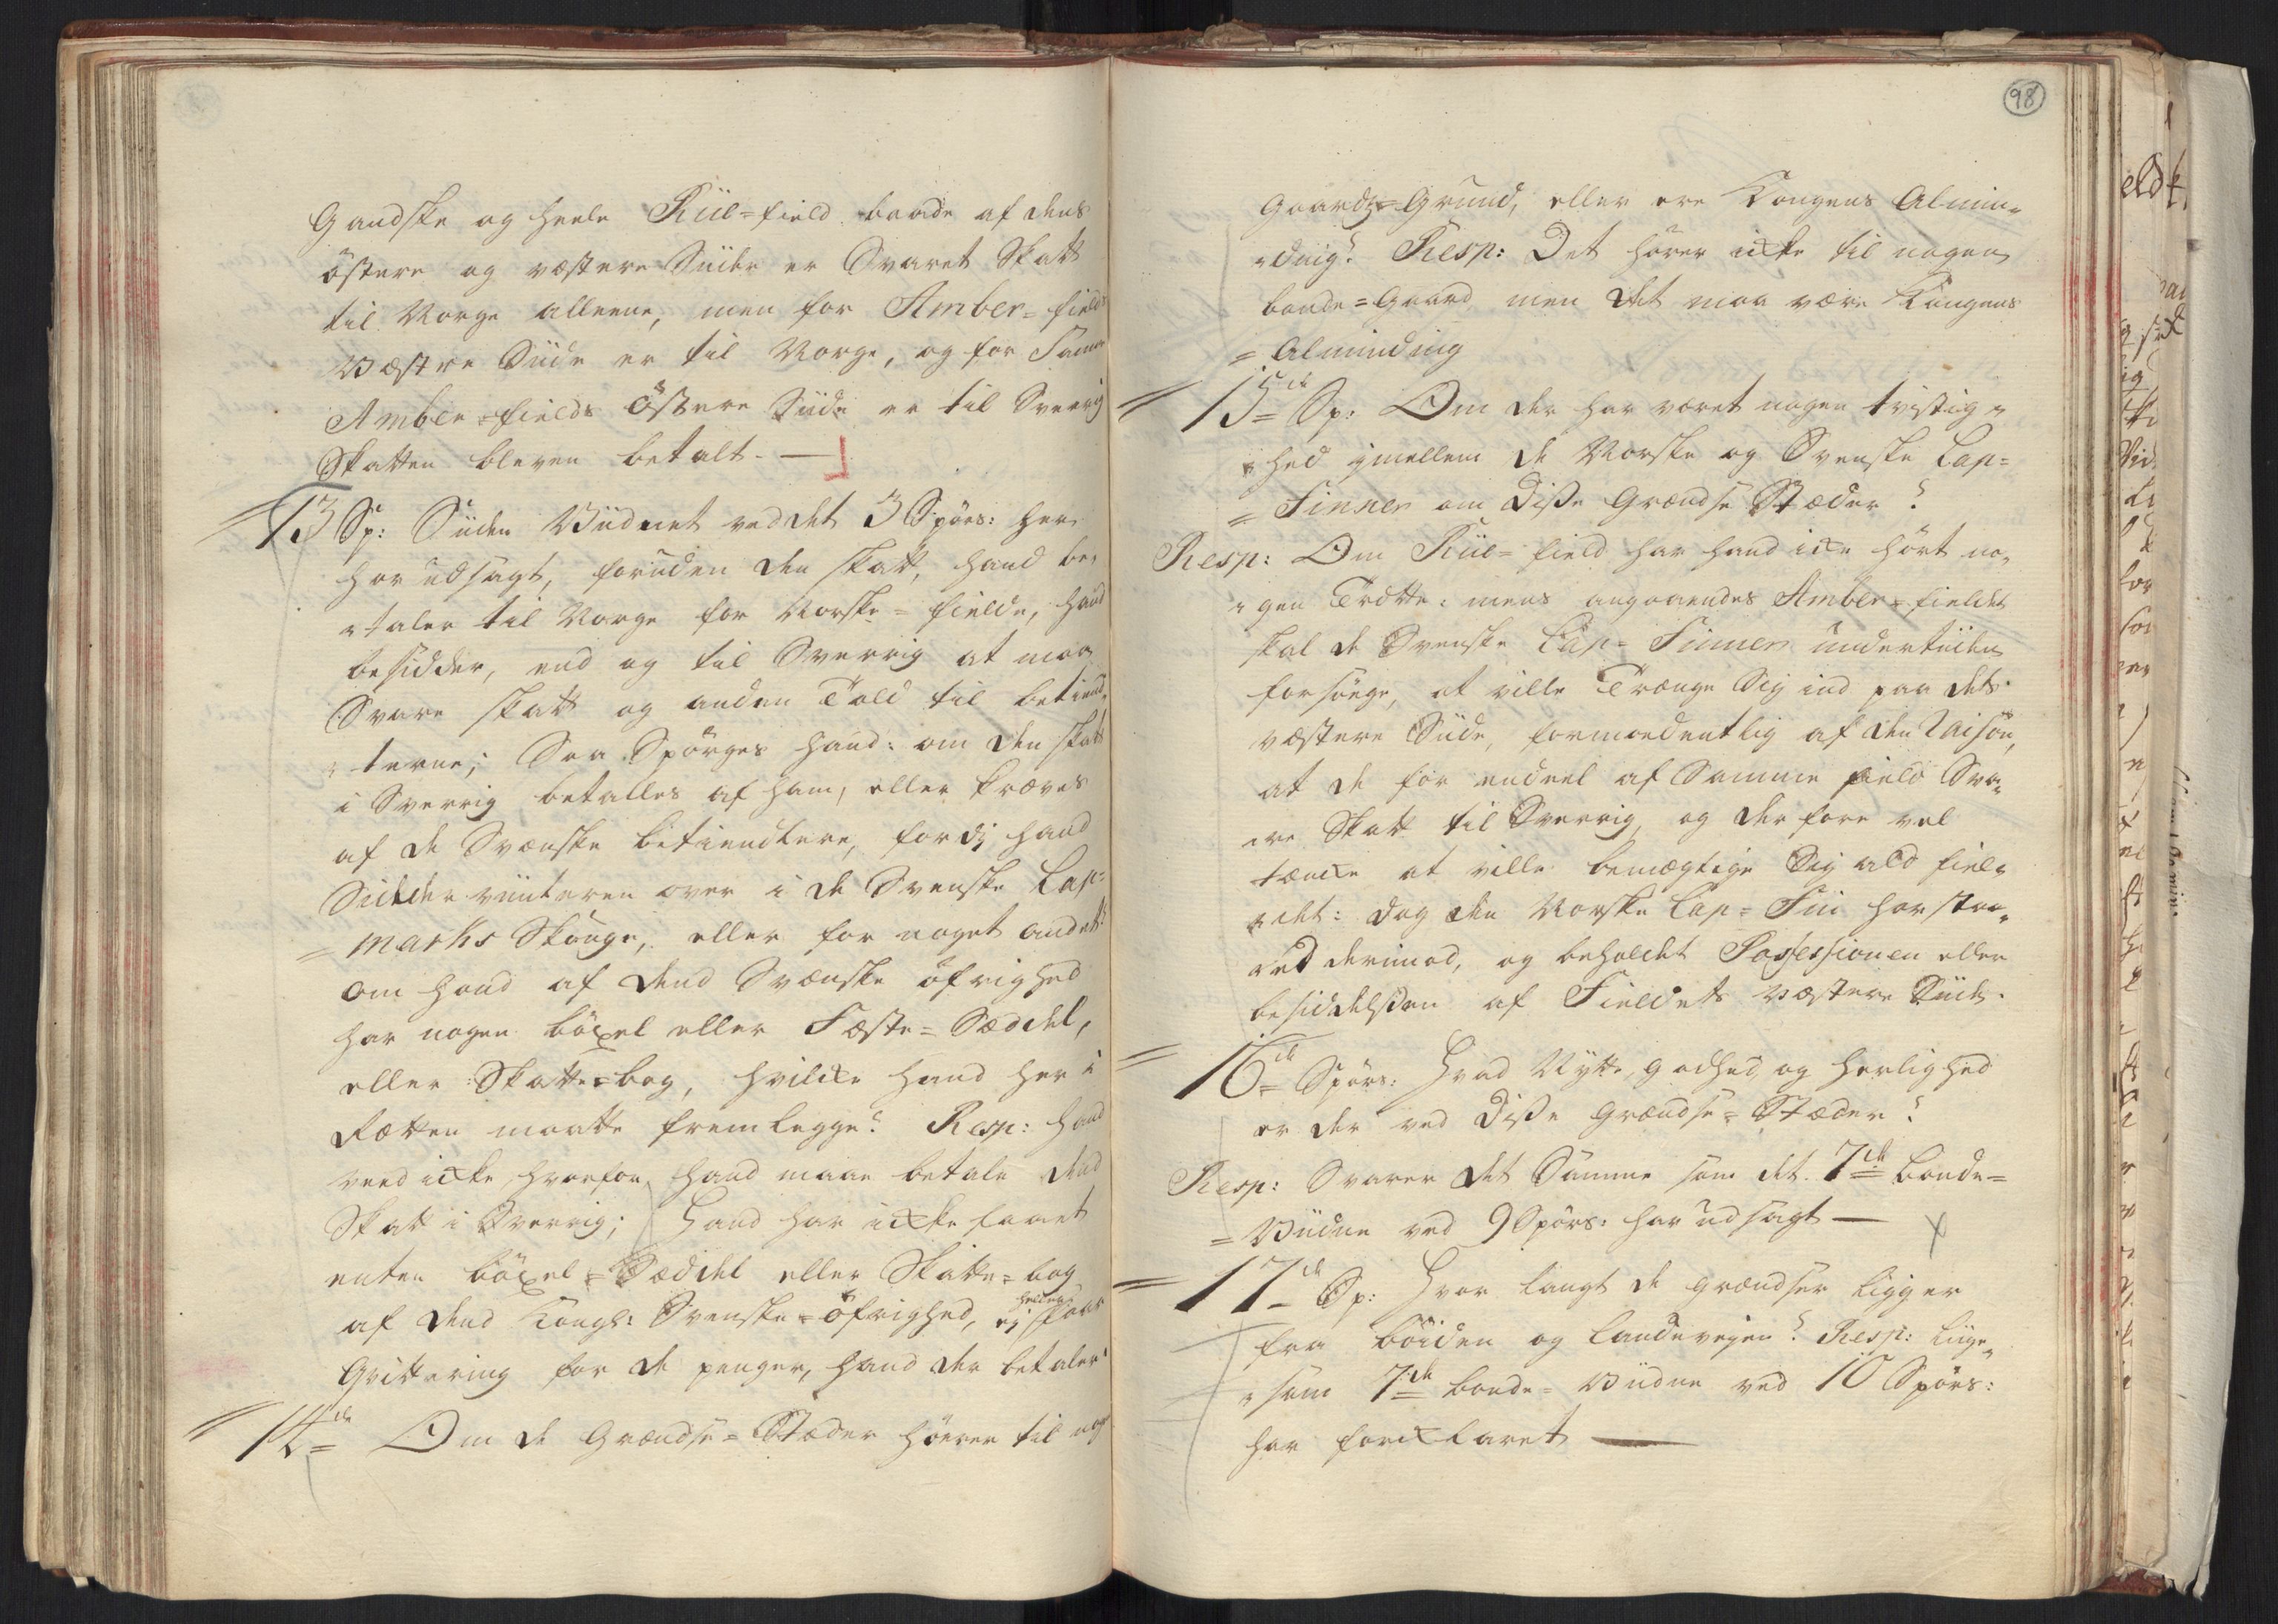 Gandske og heele Rüe=field baade af dens
östere og vestere Siide er Svaret Skatt
til Norge alleene, men for Amber=fields
Vestre Siide er til Norge, og for Samme
Amber=fields Östere Siide er til Sverrig
Skatten bleven betalt. —
13 Sp: Siden Viidnet ved det 3 Spörs: her
har udsagt, foruden den skatt, hand be,
,taler til Norge for Norske=fielde, hand
besidder, end og til Sverrig at maa
Svare skatt og anden Told til betiend,
,terne; Saa Spörges hand: om den skatt
i Sverrig betalles af ham, eller kræves
af de Svenske betiendtere, fordj hand
Sidder viinteren over i de Svenske Lap=
=marks Skouge, eller for noget andet?
om hand af dend Svenske öfrighed
har nogen böxel eller Fæste=Sæddel,
eller Skatte=bog, hvilcke hand her i
Rætten maatte fremlegge? Resp: hand
veed icke, hvorfor hand maae betale dend
Skatt i Sverrig; Hand har icke faaet
enten böxel=Sæddel eller Skatte=bog
af dend Kongl: Svenske=öfrighed, ej heller faaer
Qvittering for de penger, hand der betaler
14de Om de Grændse=Stæder hörer til nogen

98
Gaards=Grund, eller ere Kongens Almin,
,ding? Resp: Det hörer icke til nogen
bonde=Gaard men det maa være Kongens
=Alminding
15de Sp: Om der har været nogen tvistig,
,hed imellem de Norske og Svenske Lap=
=Finner om Disse Grændse Stæder?
Resp: Om Rüe=field har hand icke hört no,
,gen Trætte: mens angaaendes Amber=fieldet
skal de Svenske Lap=Finner undertiiden
forsöge, at ville Trænge Sig ind paa dets
vestere Siide, formoedentlig af den Raison,
at de for endeel af Samme field Sva,
,re Skatt til Sverrig, og derfore vel
tæncke at ville bemægtige Sig ald fiel,
,det: dog den Norske Lap=Fin har staa,
,et derimod, og beholdet Possessionen eller
besiddelsen af Fieldets Vestere Siide.
16de Spörs: Hvad Nytte, godhed, og herlighed
er der ved Disse Grændse=Stæder?
Resp: Svarer det Samme som det 7de bonde=
=Viidne ved 9 Spörs: har udsagt —
17de Sp: Hvor langt de grændser ligger
fra böiden og landevejen? Resp: Liige,
,som 7de bonde=Viidne ved 10 Spörs:
har forcklaret —